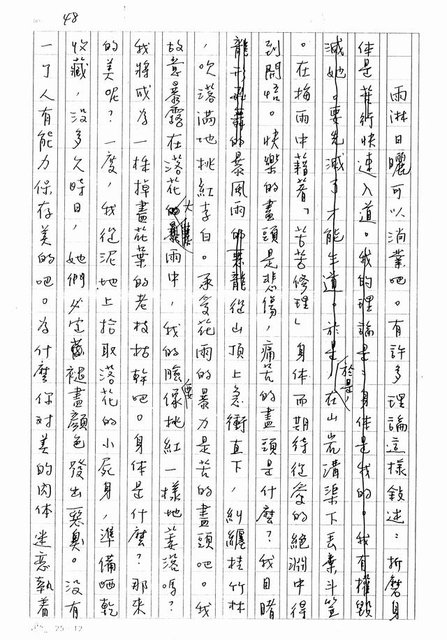 雨淋日曬可以消業吧。有許多理論這樣敘述：折磨身
体是苦行快速入道。我的理論是：身体是我的。我有權毀
滅她。要先滅了才能生道。於是，在山岩清渠下丟棄斗笠
。在梅雨中藉著「苦苦修理」身体而期待從愛的絕淵中得
到開悟。快樂的盡頭是悲傷，痛苦的盡頭是什麼？我目睹
龍形的暴風雨龍從山頂上急衝直下，糾纏桂竹林
，吹落滿地桃紅李白。承受花雨的暴力是苦的盡頭吧。我
故意暴露在落花的大雨中，我的臉像桃紅一樣地萎落嗎？
我將成為一株掉盡花葉的老枝枯幹吧。身体是什麼？那來
的美呢？一度，我從泥地上拾取落花的小屍身，準備晒乾
收藏，沒多久時日，她們必定褪盡顏色發出惡臭。沒有
一个人有能力保存美的吧。為什麼你對美的肉体迷戀執着
48